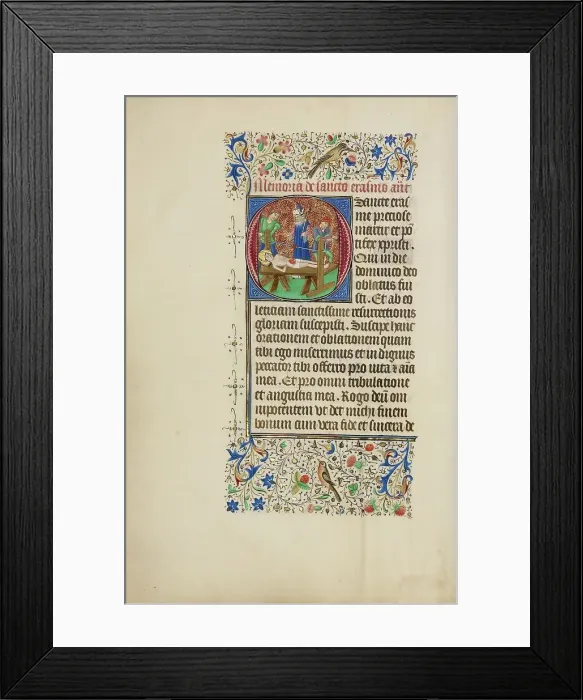 Memoria de sancto erasmo añt
Sancte eras
me preciose
martir et põ
tifex xpristi.
Qui in die
dominico deo
oblatus fui
sti. Et ab eo
leticiam sanctissime resurrectionis
gloriam suscepisti. Suscipe hanc
orationem et oblationem quam
tibi ego miserrimus et indignus
peccator tibi offerro pro vita & aĩa
mea. Et pro omni tribulatione
et angustia mea. Rogo deũ om
nipotentem vt det michi finem
bonum cum vera fide et sincera de